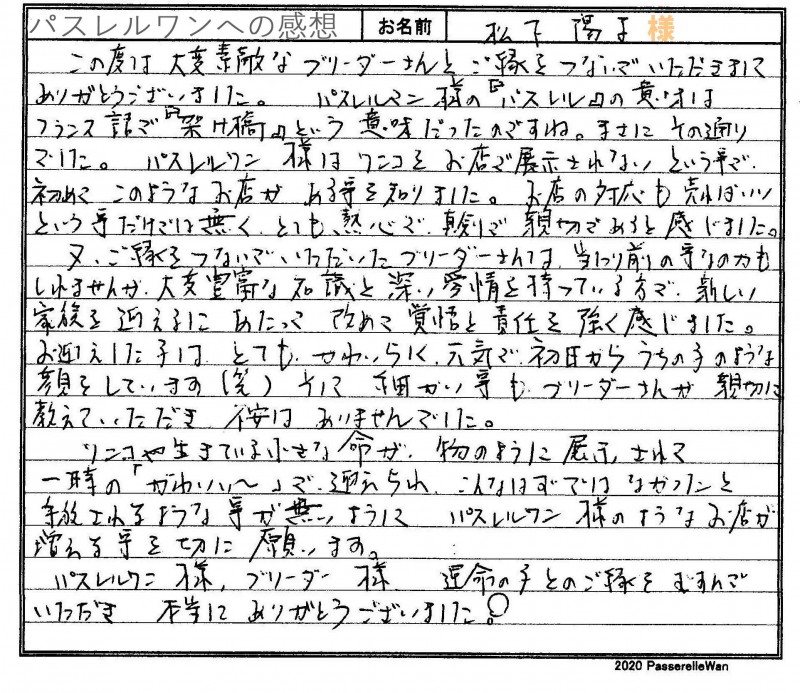 パスレルワンへの感想 お名前 松下 陽子 様
この度は 大変素敵な ブリーダーさんと ご縁を つないで いただきまして
ありがとうございました。 パスレルワン 様の『パスレル』の 意味は
フランス語で『架け橋』という 意味だったのですね。まさに その通り
でした。 パスレルワン 様は ワンコを お店で展示されない という事で、
初めて このような お店が ある事を知りました。 お店の対応も 売ればいい
という事だけでは無く、とても、熱心で、真剣で 親切であると感じました。
又、ご縁をつないでいただいた ブリーダーさんは、当たり前の事なのかも
しれませんが、大変豊富な知識と深い愛情を持っている方で、新しい
家族を迎えるに あたって 改めて 覚悟と責任を 強く感じました。
お迎えした子は とても かわいらしく、元気で、初日から うちの子のような
顔をしています(笑) 細かい事も ブリーダーさんが 親切に
教えていただき 不安は ありませんでした。
ワンコや生きている小さな命が、物のように展示されて
一時の「かわいい〜」で、迎えられ、こんなはずでは なかったと
手放されるような事が無いように パスレルワン 様のような お店が
増える事を切に 願います。
パスレルワン 様、ブリーダー 様 運命の子とのご縁を むすんで
いただき 本当に ありがとうございました。
2020 PasserelleWan